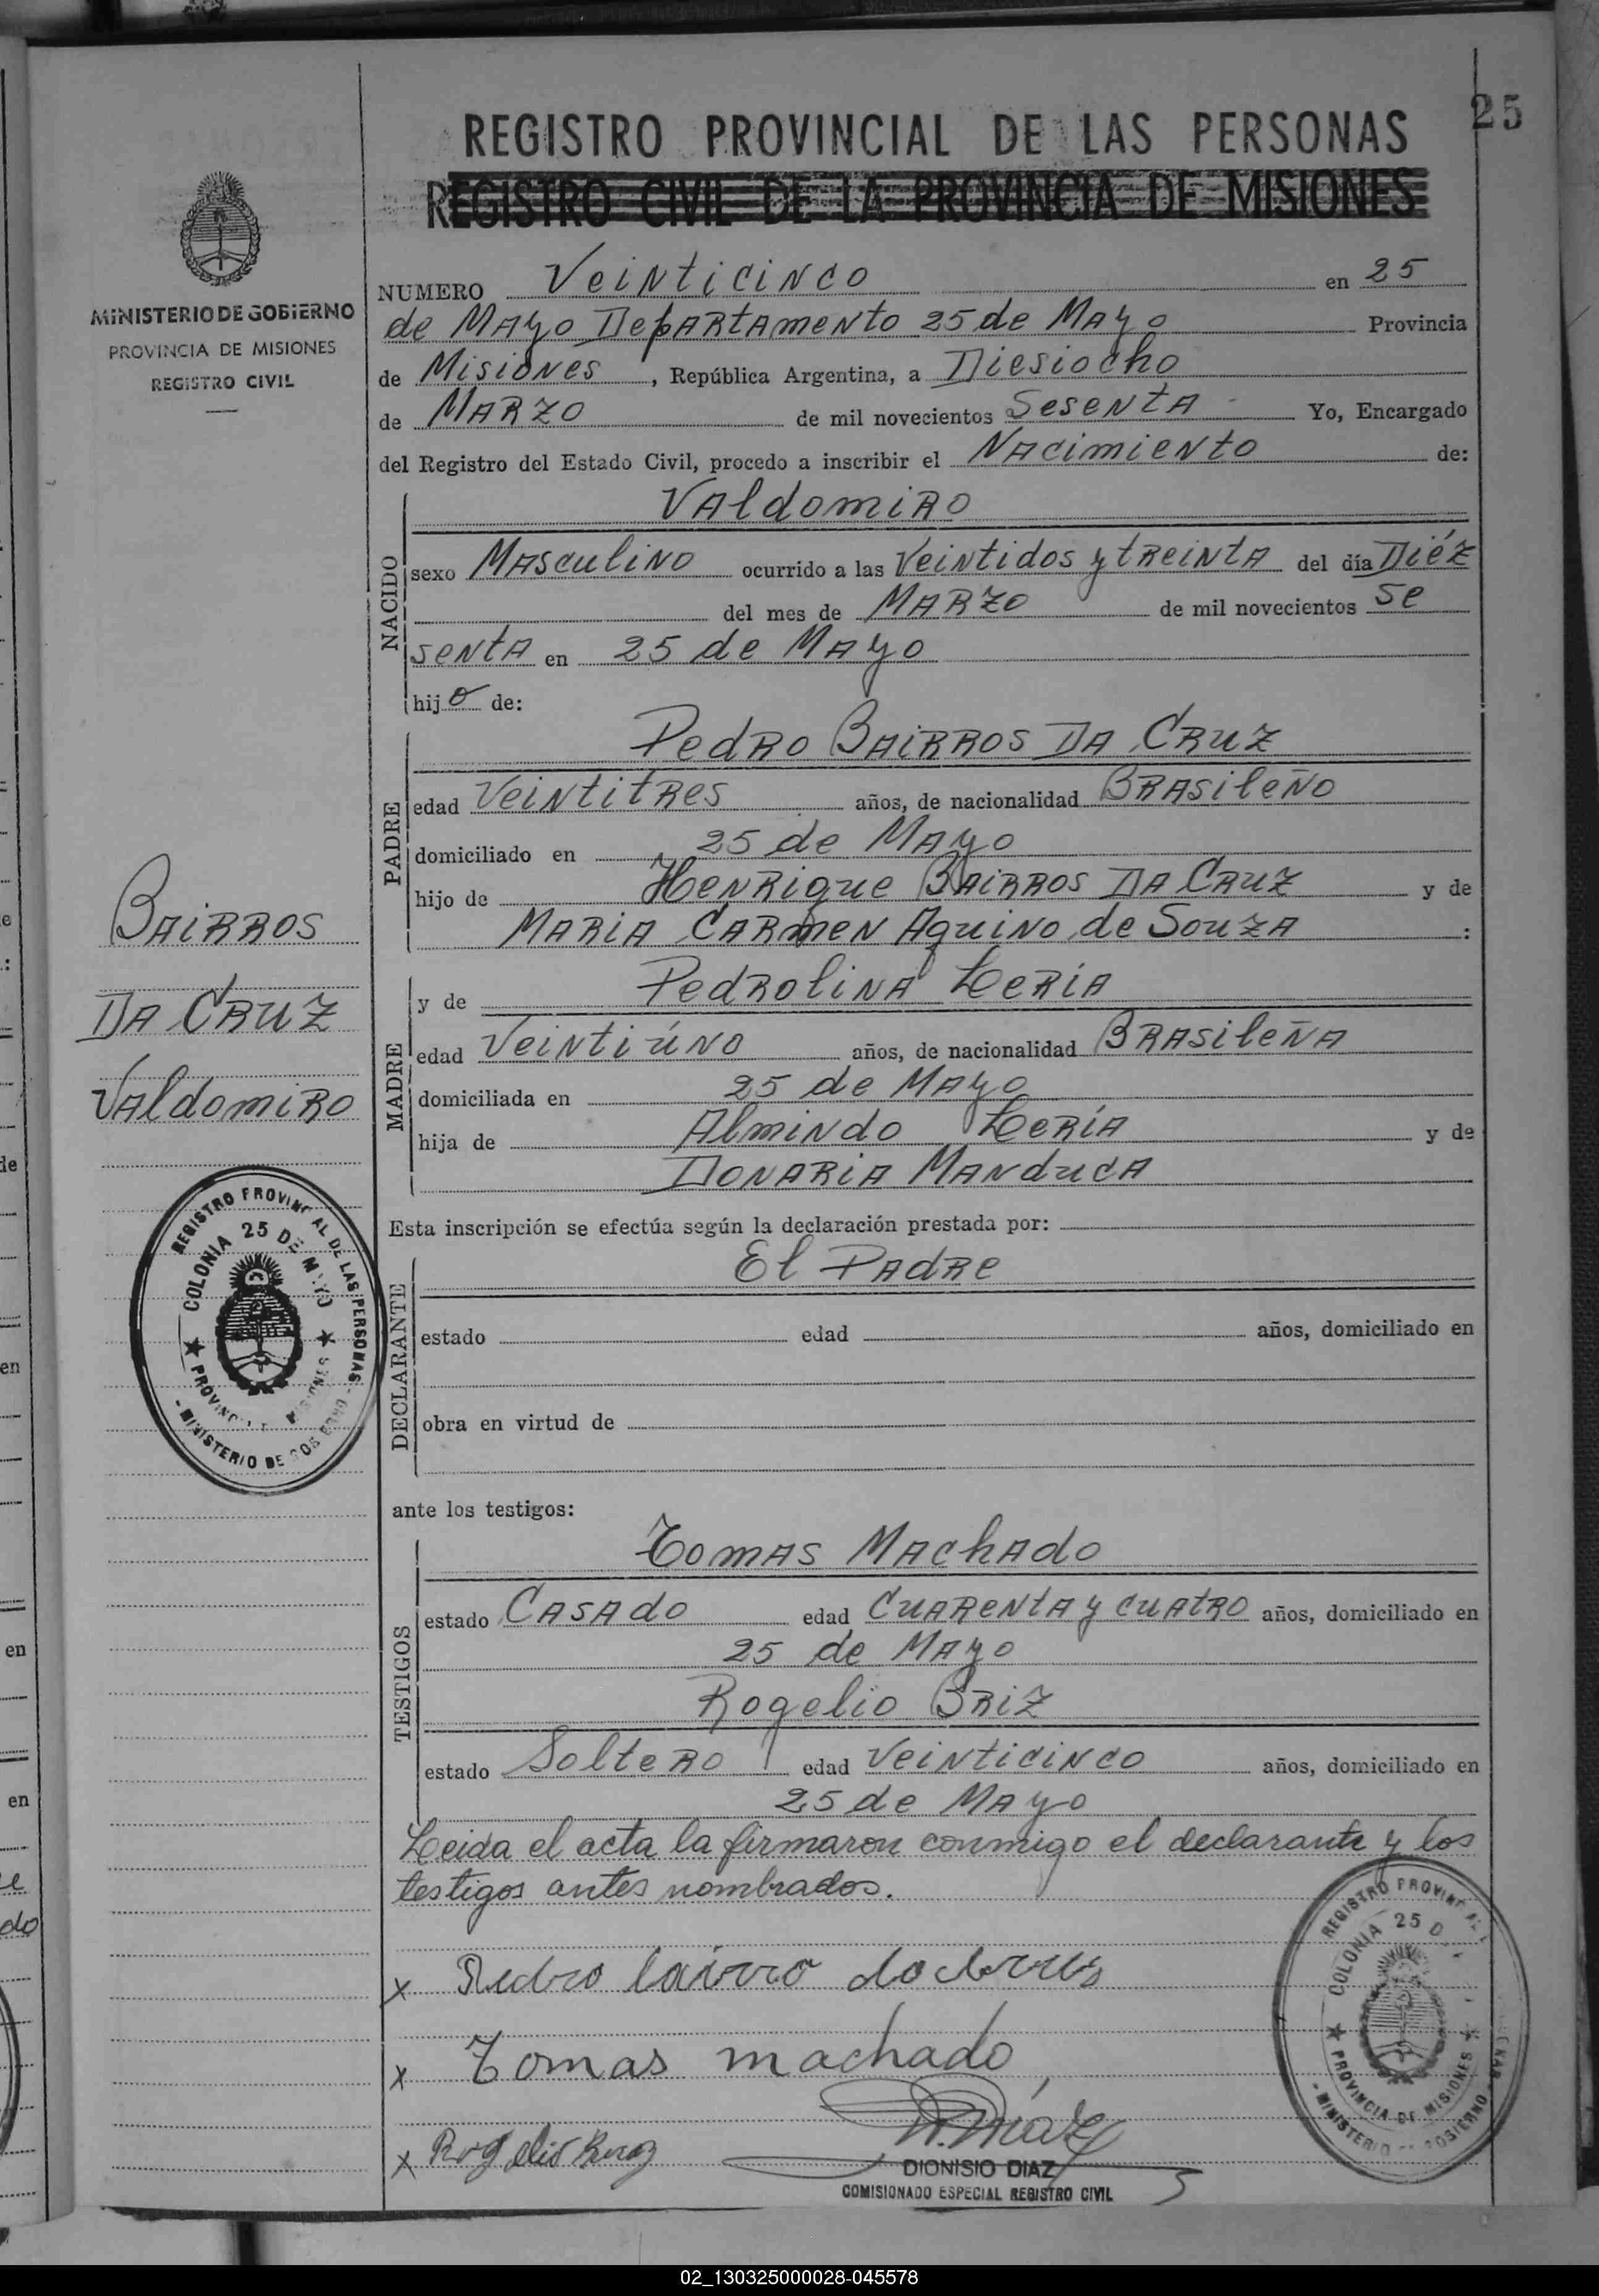 25
REGISTRO PROVINCIAL DE LAS PERSONAS
REGISTRO CIVIL DE LA PROVINCIA DE MISIONES
MINISTERIO DE GOBIERNO
PROVINCIA DE MISIONES
REGISTRO CIVIL
NUMERO Veinticinco en 25
de Mayo Departamento 25 de Mayo Provincia
de Misiones, República Argentina, a Diesiocho
de Marzo de mil novecientos Sesenta Yo, Encargado
del Registro del Estado Civil, procedo a inscribir el Nacimiento de:
NACIDO
Valdomiro
sexo Masculino ocurrido a las Veintidos y treinta del día Diéz
del mes de Marzo de mil novecientos Se
senta en 25 de Mayo
hijo de:
PADRE
Pedro Bairros Da Cruz
edad Veintitres años, de nacionalidad Brasileño
domiciliado en 25 de Mayo
hijo de Henrique Bairros Da Cruz y de
Maria Carmen Aquino de Souza :
MADRE
y de Pedrolina Lería
edad Veintiúno años, de nacionalidad Brasileña
domiciliada en 25 de Mayo
hija de Almindo Lería y de
Donaria Manduca
Bairros
Da Cruz
Valdomiro
REGISTRO PROVINCIAL DE LAS PERSONAS
COLONIA 25 DE MAYO
PROVINCIA DE MISIONES
- MINISTERIO DE GOBIERNO -
Esta inscripción se efectúa según la declaración prestada por:
DECLARANTE
El Padre
estado edad años, domiciliado en
obra en virtud de
ante los testigos:
TESTIGOS
Tomas Machado
estado Casado edad Cuarenta y cuatro años, domiciliado en
25 de Mayo
Rogelio Briz
estado Soltero edad Veinticinco años, domiciliado en
25 de Mayo
Leida el acta la firmaron conmigo el declarante y los
testigos antes nombrados.
x Pedro bairro do cruz
x Tomas machado
x Rogelio
D. Díaz
DIONISIO DIAZ
COMISIONADO ESPECIAL REGISTRO CIVIL
REGISTRO PROVINCIAL
COLONIA 25 D
PROVINCIA DE MISIONES
- MINISTERIO DE GOBIERNO -
02_130325000028-045578